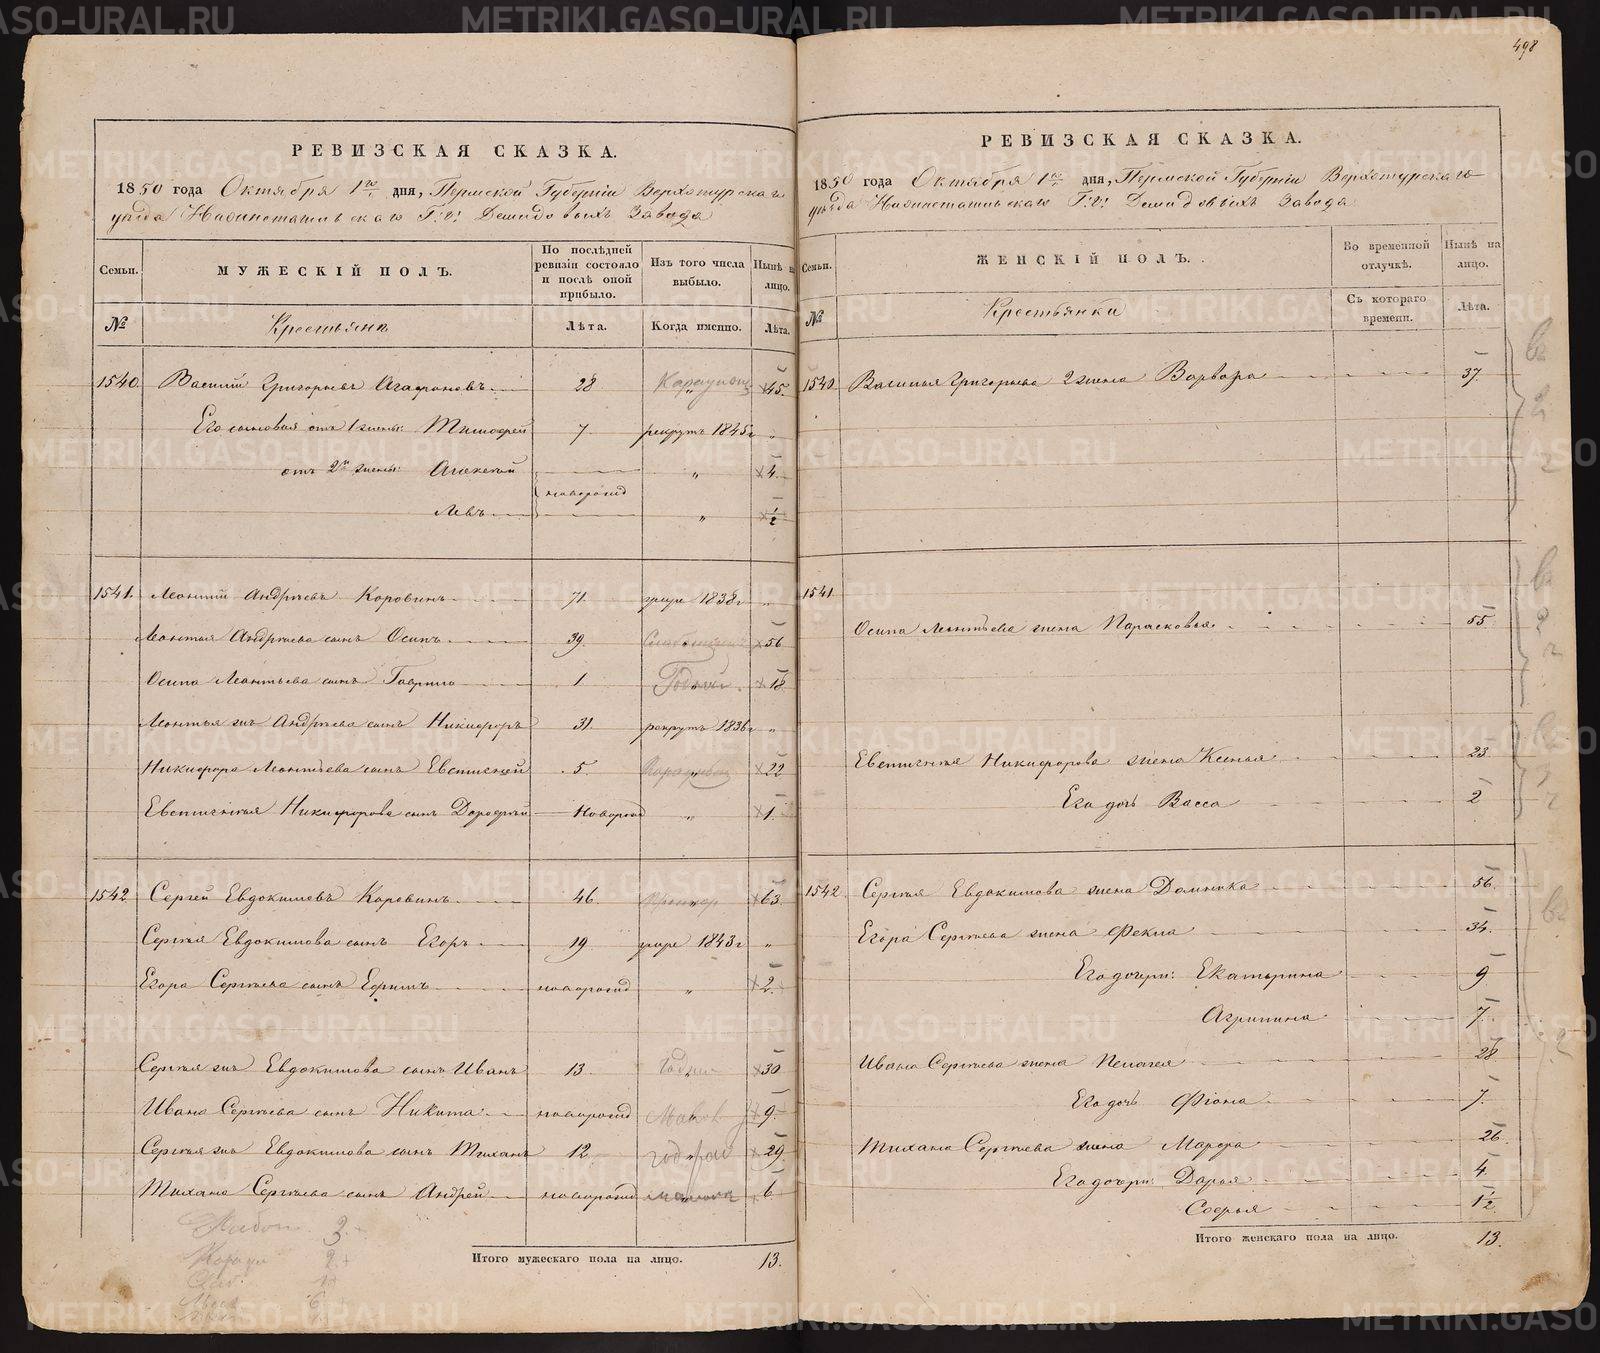 498
РЕВИЗСКАЯ СКАЗКА.
1850 года Октября 1го дня, Пермской Губерніи Верхотурскаго
уѣзда Нижнетагильскаго Г.г. Демидовыхъ Завода
Семьи.
МУЖЕСКІЙ ПОЛЪ.
По послѣдней ревизіи состояло и послѣ оной прибыло.
Изъ того числа выбыло.
Нынѣ на лицо.
№
Крестьянъ
Лѣта.
Когда именно.
Лѣта.
1540 Василий Григорьевъ Агафоновъ 28 45.
Его сыновья отъ 1 жены: Тимофей 7 рекрутъ 1845г "
отъ 2й жены: Алексей " 4
новорожд
Левъ " 1/2
1541. Леонтий Андреевъ Коровинъ 71. умре 1838г "
Леонтья Андреева сынъ Осипъ 39. 56
Осипа Леонтьева сынъ Гаврило 1 Годной 18
Леонтья жъ Андреева сынъ Никифоръ 31. рекрутъ 1836г "
Никифора Леонтьева сынъ Евстигней 5. 22
Евстигнея Никифорова сынъ Дорофей новорожд " 1.
1542 Сергей Евдокимовъ Коровинъ 46. 63.
Сергея Евдокимова сынъ Егоръ 19 умре 1843г "
Егора Сергеева сынъ новорожд " 2
Сергея жъ Евдокимова сынъ Иванъ 13. Годной 30
Ивана Сергеева сынъ Никита новорожд 9.
Сергея жъ Евдокимова сынъ Тиханъ 12 годной 29
Тихана Сергеева сынъ Андрей новорожд 6
Итого мужескаго пола на лицо. 13.
РЕВИЗСКАЯ СКАЗКА.
1850 года Октября 1го дня, Пермской Губерніи Верхотурскаго
уѣзда Нижнетагильскаго Г.г. Демидовыхъ Завода
Семьи.
ЖЕНСКІЙ ПОЛЪ.
Во временной отлучкѣ.
Нынѣ на лицо.
№
Крестьянки
Съ котораго времени.
Лѣта.
1540 Василья Григорьева 2 жена Варвара 37.
1541
Осипа Леонтьева жена Парасковья 55
Евстигнея Никифорова жена Ксенья 23
Его дочь Васса 2
1542. Сергея Евдокимова жена Домника 56.
Егора Сергеева жена Фекла 34.
Его дочери: Екатерина 9
Агрипина 7.
Ивана Сергеева жена Пелагея 28
Его дочь Фіона 7.
Тихана Сергеева жена Марфа 26.
Его дочери: Дарья 4
Софья 1 1/2
Итого женскаго пола на лицо. 13.
METRIKI.GASO-URAL.RU